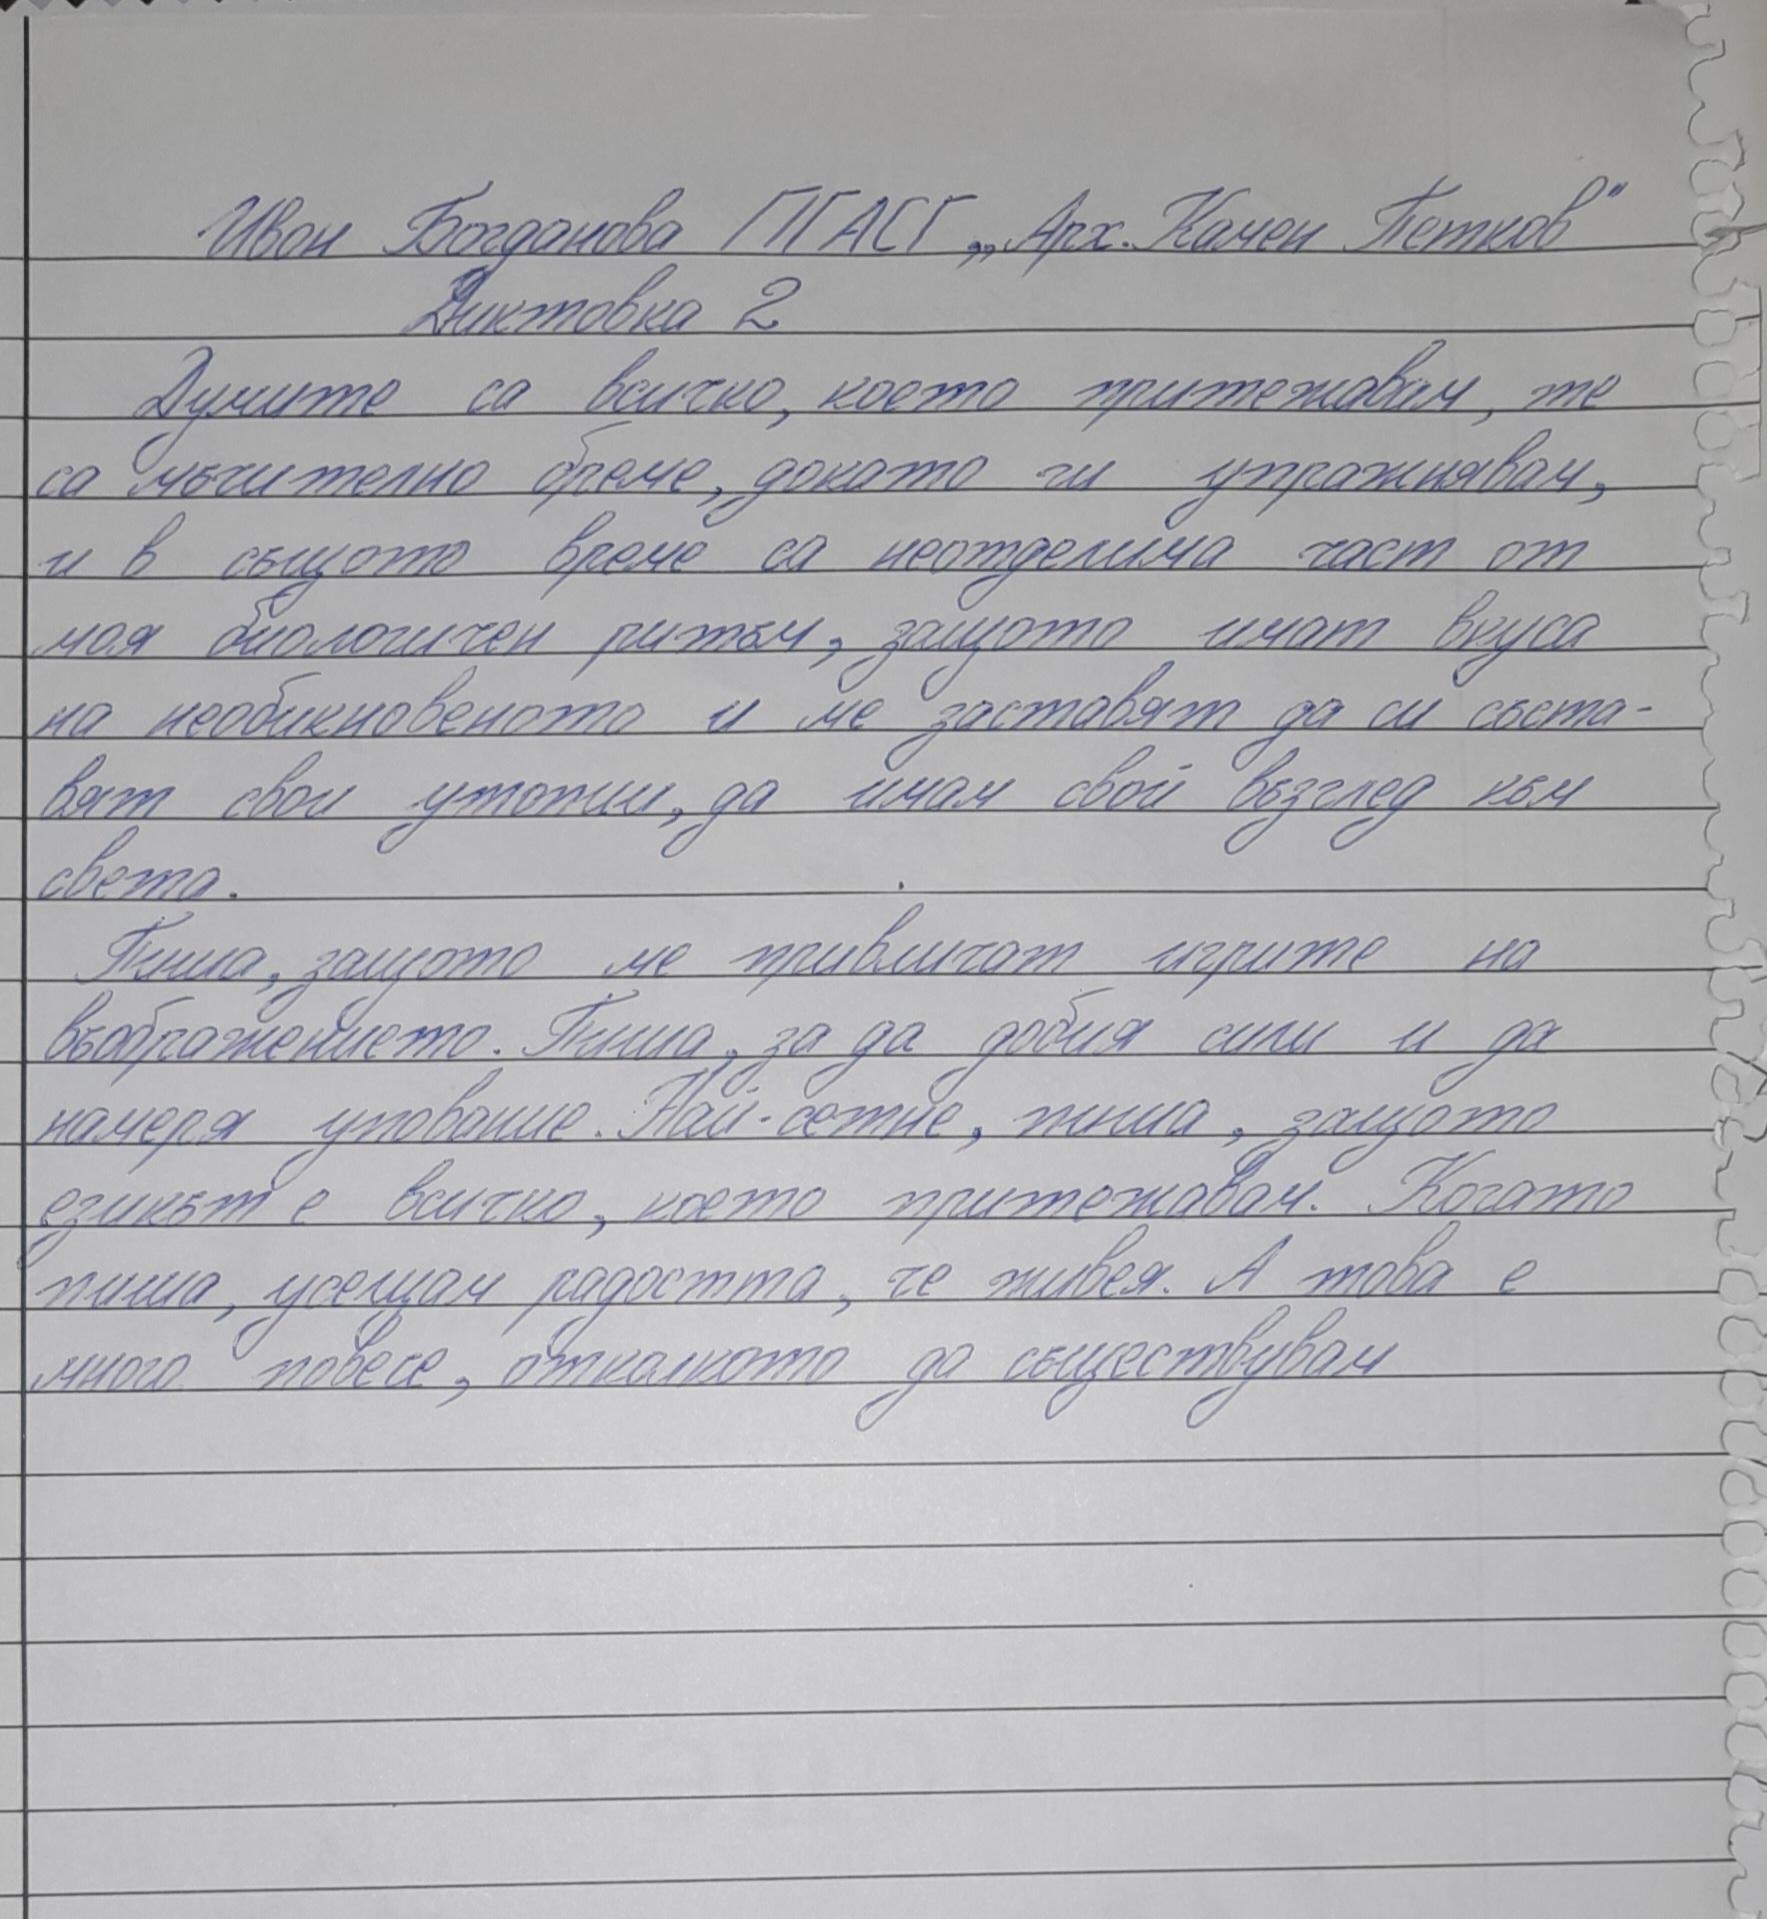 Ивон Богданова ПГАСГ „Арх. Камен Петков“
Диктовка 2
Думите са всичко, което притежавам, те
са мъчително бреме, докато ги упражнявам,
и в същото време са неотделима част от
моя биологичен ритъм, защото имат вкуса
на необикновеното и ме заставят да си съста-
вят свои утопии, да имам свой възглед към
света.
Пиша, защото ме привличат игрите на
въображението. Пиша, за да добия сили и да
намеря упование. Най-сетне, пиша, защото
езикът е всичко, което притежавам. Когато
пиша, усещам радостта, че живея. А това е
много повече, отколкото да съществувам